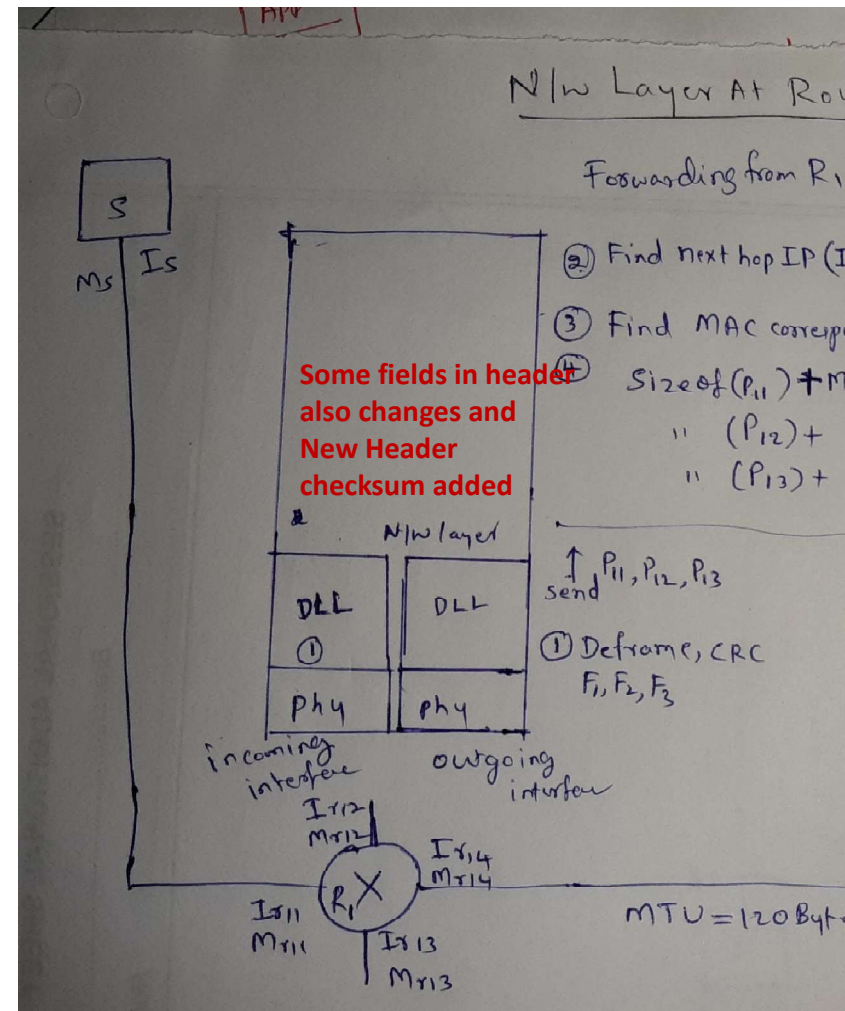 APP
N/W Layer At Rou
Forwarding from R1
S
Ms
Is
② Find next hop IP (I
③ Find MAC corresp
④ Size of (P11) + M
" (P12) +
" (P13) +
Some fields in header
also changes and
New Header
checksum added
N/W layer
↑ P11, P12, P13
send
DLL
①
DLL
① Deframe, CRC
F1, F2, F3
Phy
Phy
incoming
outgoing
Ir12
Mr12
Ir14
Mr14
R1
Ir11
Mr11
Ir13
Mr13
MTU = 120 Byt